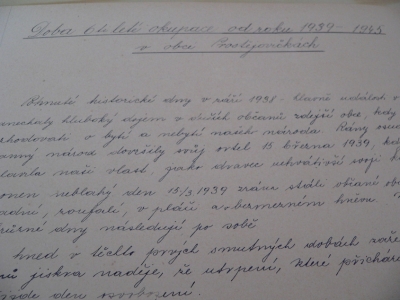 Doba 6ti leté okupace od roku 1939 - 1945
v obci Prostějovičkách
Pohnuté historické dny v září 1938 - hlavně události v
zanechaly hluboký dojem v duších občanů zdejší obce, kdy
rozhodovalo o bytí a nebytí našeho národa. Rány osudu
národ dovršily svůj ortel 15 března 1939, kdy
naši vlast, jako dravec uchvátivší svoji
neblahý den 15/3. 1939 zrána stáli občané
zoufalí, v pláči a bezmezném hněvu.
dny následují po sobě
hned v těchto prvých smutných dobách
jiskra naděje, že utrpení, které přichází
den osvobození.